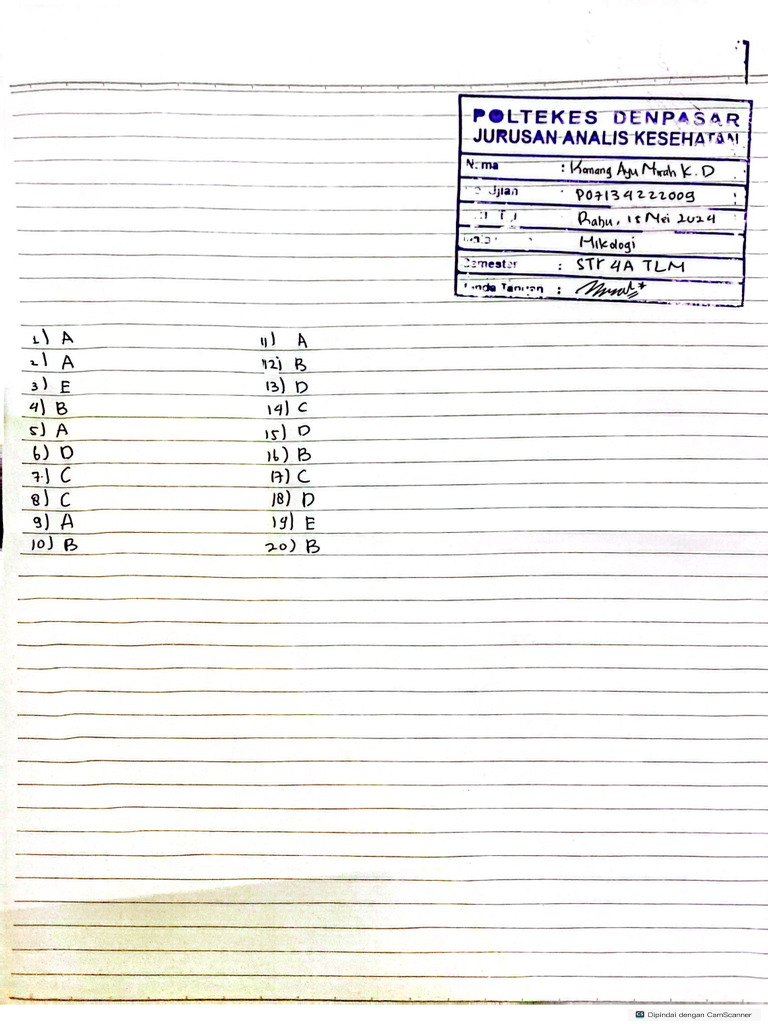 POLTEKES DENPASAR
JURUSAN ANALIS KESEHATAN
Nama : Komang Ayu Mirah K.D
Ujian : P07134222009
Rabu, 15 Mei 2024
Mikologi
Semester : STr 4A TLM
Tanda Tangan :
1) A
2) A
3) E
4) B
5) A
6) D
7) C
8) C
9) A
10) B
11) A
12) B
13) D
14) C
15) D
16) B
17) C
18) D
19) E
20) B
Dipindai dengan CamScanner